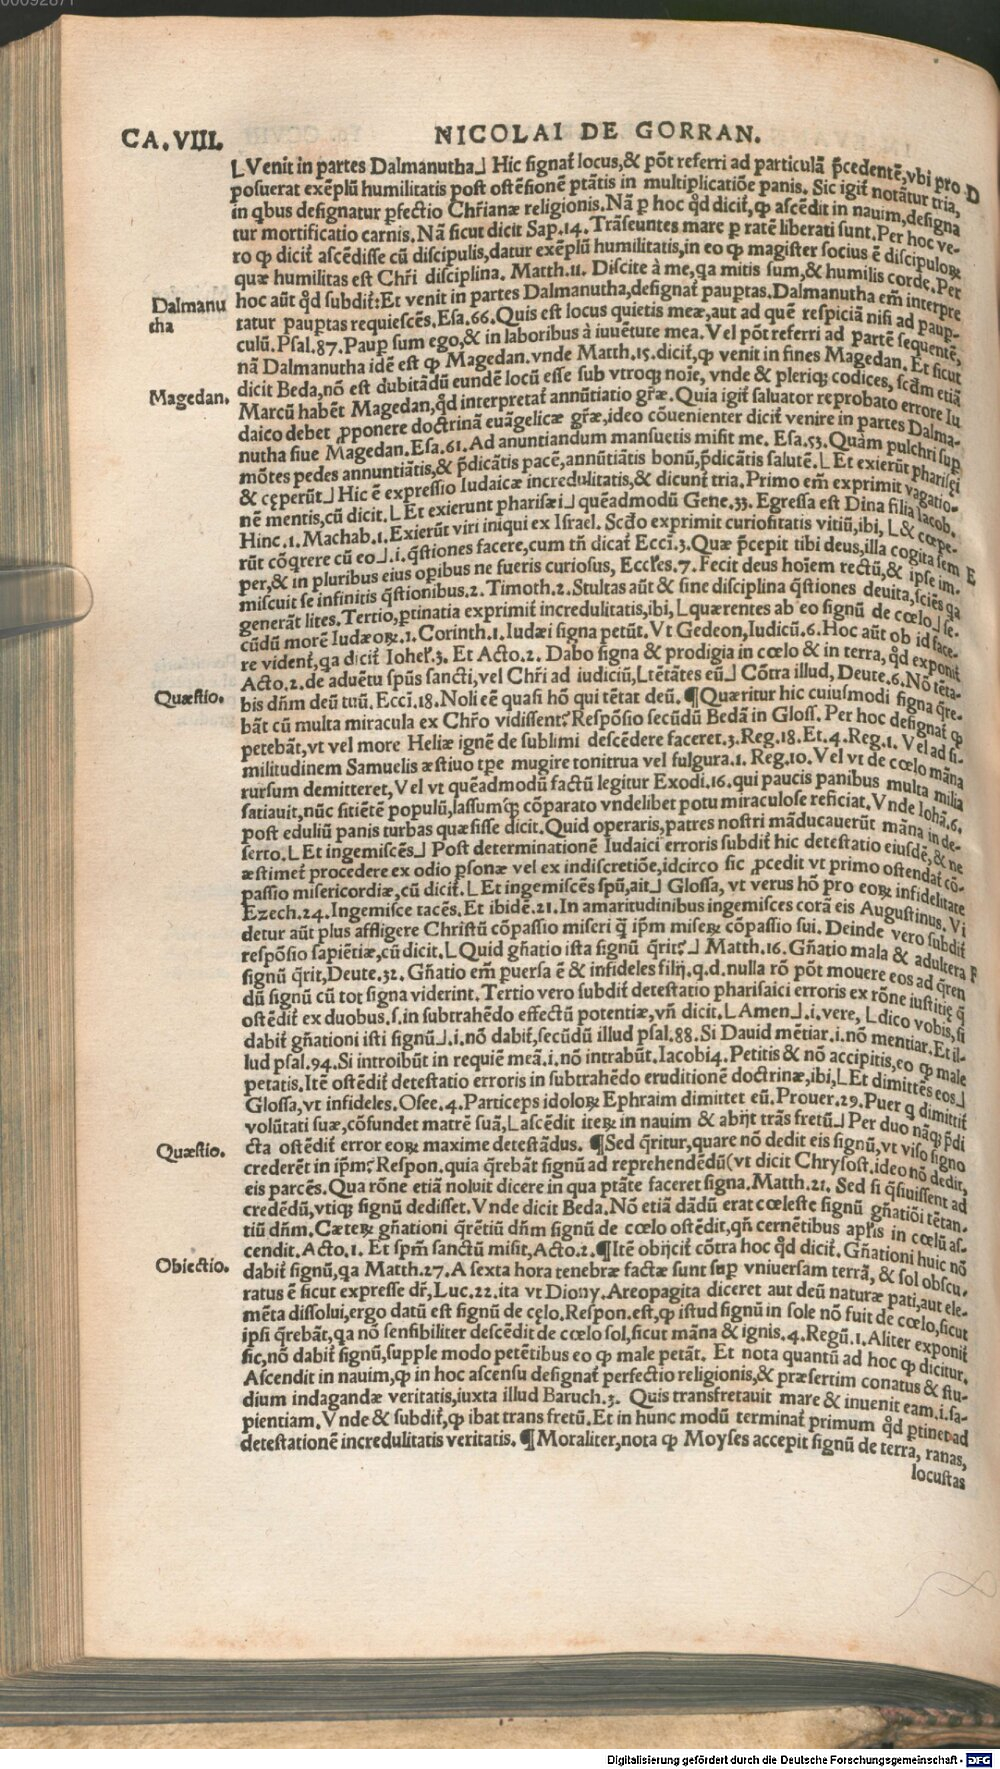 00092871
CA.VIII.
NICOLAI DE GORRAN.
⌊Venit in partes Dalmanutha⌋ Hic ſignat᷑ locus,& põt referri ad particulã p̃cedentẽ,vbi pro D
poſuerat exẽplũ humilitatis poſt oſtẽſionẽ ptãtis in multiplicatiõe panis. Sic igit᷑ notãtur tria,
in qbus deſignatur ꝑfectio Chr̃ianæ religionis.Nã ꝑ hoc qd̓ dicit, ꝙ aſcẽdit in nauim,deſigna
tur mortificatio carnis. Nã ſicut dicit Sap.14. Trãſeuntes mare ꝑ ratẽ liberati ſunt.Per hoc ve-
ro ꝙ dicit᷑ aſcẽdiſſe cũ diſcipulis,datur exẽplũ humilitatis,in eo ꝙ magiſter socius ẽ diſcipuloꝝ
quæ humilitas eſt Chr̃i diſciplina. Matth.11. Diſcite à me,qa mitis ſum,& humilis corde. Per
Dalmanu
tha
hoc aũt qd̓ ſubdit᷑:Et venit in partes Dalmanutha,deſignat᷑ pauꝑtas.Dalmanutha em̃ interpre
tatur pauꝑtas requieſcẽs.Eſa.66. Quis eſt locus quietis meæ,aut ad quẽ reſpiciã niſi ad pauꝑ-
culũ. Pſal.87. Pauꝑ ſum ego,& in laboribus à iuuẽture mea. Vel põt referri ad partẽ ſequentẽ,
nã Dalmanutha idẽ eſt ꝙ Magedan.vnde Matth.15.dicit᷑,ꝙ venit in fines Magedan. Et ſicut
Magedan.
dicit Beda,nõ eſt dubitãdũ eundẽ locũ eſſe ſub vtroqꝫ noĩe, vnde & pleriqꝫ codices, ſcd̃m etiã
Marcũ habẽt Magedan,qd̓ interpretat᷑ annũtiatio gr̃æ. Quia igit᷑ ſaluator reprobato errore Iu
daico debet ꝓponere doctrinã euãgelicæ gr̃æ,ideo cõuenienter dicit᷑ venire in partes Dalma-
nutha ſiue Magedan.Eſa.61. Ad anuntiandum manſuetis miſit me. Eſa.53. Quàm pulchri ſuꝑ
mõtes pedes annuntiãtis,& p̃dicãtis pacẽ,annũtiãtis bonũ,p̃dicãtis ſalutẽ. ⌊Et exierũt phariſęi
& cęperũt⌋ Hic ẽ expreſſio Iudaicæ incredulitatis,& dicunt᷑ tria. Primo em̃ exprimit᷑ vagatio-
nẽ mentis,cũ dicit.⌊Et exierunt phariſæi⌋ quẽadmodũ Gene.33. Egreſſa eſt Dina filia Iacob.
Hinc.1. Machab.1.Exierũt viri iniqui ex Iſrael. Scd̃o exprimit curioſitatis vitiũ,ibi, ⌊& cœpe-
rũt cõqrere cũ eo⌋.i.q̃ſtiones facere,cum tñ dicat᷑ Ecci̓.3.Quæ p̃cepit tibi deus,illa cogita ſem E
per,& in pluribus eius oꝑibus ne fueris curioſus, Eccl̓es.7. Fecit deus hoĩem rectũ,& ipſe im-
miſcuit ſe infinitis q̃ſtionibus.2. Timoth.2. Stultas aũt & ſine diſciplina q̃ſtiones deuita,ſciẽs qa
generãt lites. Tertio,ꝑtinatia exprimit᷑ incredulitatis,ibi,⌊quærentes ab eo ſignũ de cœlo⌋ ſe-
cũdũ morẽ Iudæoꝝ.1. Corinth.1. Iudæi ſigna petũt. Vt Gedeon,Iudicũ.6. Hoc aũt ob id face-
re vident᷑,qa dicit᷑ Iohel̓.3. Et Acto.2. Dabo ſigna & prodigia in cœlo & in terra, qd̓ exponit᷑
Acto.2.de aduẽtu ſpũs ſancti,vel Chr̃i ad iudiciũ,⌊tẽtãtes eũ⌋ Cõtra illud, Deute.6. Nõ tẽta-
Quæſtio.
bis dñm deũ tuũ. Ecci̓.18. Noli eẽ quaſi hõ qui tẽtat deũ. ¶Quæritur hic cuiuſmodi ſigna q̃re-
bãt cũ multa miracula ex Chr̃o vidiſſent? Reſpõſio ſecũdũ Bedã in Gloſſ. Per hoc deſignat᷑ ꝙ
petebãt,vt vel more Heliæ ignẽ de ſublimi deſcẽdere faceret.3.Reg.18. Et.4.Reg.1. Vel ad ſi-
militudinem Samuelis æſtiuo tp̃e mugire tonitrua vel fulgura.1. Reg.10. Vel vt de cœlo mãna
rurſum demitteret, Vel vt quẽadmodũ factũ legitur Exodi.16. qui paucis panibus multa milia
ſatiauit,nũc ſitiẽtẽ populũ,laſſumqꝫ cõparato vndelibet potu miraculoſe reficiat. Vnde Iohã.6.
poſt eduliũ panis turbas quæſiſſe dicit.Quid operaris,patres noſtri mãducauerũt mãna in de-
ſerto.⌊Et ingemiſcẽs⌋ Poſt determinationẽ Iudaici erroris ſubdit᷑ hic deteſtatio eiuſdẽ, & ne
æſtimet᷑ procedere ex odio ꝑſonæ vel ex indiſcretiõe,idcirco ſic ꝓcedit vt primo oſtendat᷑ cõ-
paſſio miſericordiæ,cũ dicit᷑.⌊Et ingemiſcẽs ſpũ,ait⌋ Gloſſa, vt verus hõ pro eoꝝ infidelitate
Ezech.24. Ingemiſce tacẽs. Et ibidẽ.21. In amaritudinibus ingemiſces corã eis Auguſtinus. Vi
detur aũt plus affligere Chriſtũ cõpaſſio miſeri q̃ ip̃m miſeꝝ cõpaſſio ſui. Deinde vero ſubdit᷑
reſpõſio ſapiẽtiæ,cũ dicit.⌊Quid gñatio iſta ſignũ q̃rit?⌋ Matth.16. Gñatio mala & adultera F
ſignũ q̃rit,Deute.32. Gñatio em̃ ꝑuerſa ẽ & infideles filij.q.d.nulla rõ põt mouere eos ad q̃ren
dũ ſignũ cũ tot ſigna viderint. Tertio vero ſubdit᷑ deteſtatio phariſaici erroris ex rõne iuſtitię q̃
oſtẽdit᷑ ex duobus.ſ.in ſubtrahẽdo effectũ potentiæ,vñ dicit.⌊Amen⌋.i.vere, ⌊dico vobis,ſi
dabit᷑ gñationi iſti ſignũ⌋.i.nõ dabit᷑,ſecũdũ illud pſal.88. Si Dauid mẽtiar.i.nõ mentiar. Et il-
lud pſal.94. Si introibũt in requiẽ meã.i.nõ intrabũt. Iacobi4. Petitis & nõ accipitis,eo ꝙ male
petatis. Itẽ oſtẽdit᷑ deteſtatio erroris in ſubtrahẽdo eruditionẽ doctrinæ,ibi,⌊Et dimittẽs eos⌋
Gloſſa,vt infideles. Oſee.4. Particeps idoloꝝ Ephraim dimittet eũ. Prouer.29. Puer q dimittit᷑
volũtati ſuæ,cõfundet matrẽ ſuã,⌊aſcẽdit iteꝝ in nauim & abijt trãs fretũ⌋ Per duo nãqꝫ p̃di
Quæſtio.
cta oſtẽdit᷑ error eoꝝ maxime deteſtãdus. ¶Sed q̃ritur,quare nõ dedit eis ſignũ,vt viſo ſigno
crederẽt in ip̃m? Reſpon.quia q̃rebãt ſignũ ad reprehendẽdũ(vt dicit Chryſoſt.ideo nõ dedit,
eis parcẽs. Qua rõne etiã noluit dicere in qua ptãte faceret ſigna. Matth.21. Sed ſi q̃ſiuiſſent ad
credẽdũ,vtiqꝫ ſignũ dediſſet. Vnde dicit Beda. Nõ etiã dãdũ erat cœleſte ſignũ gñatiõi tẽtan-
tiũ dñm. Cæteꝝ gñationi q̃rẽtiũ dñm ſignũ de cœlo oſtẽdit,qñ cernẽtibus apl̓is in cœlũ aſ-
cendit. Acto.1. Et ſpm̃ ſanctũ miſit,Acto.2.¶Itẽ obijcit᷑ cõtra hoc qd̓ dicit. Gñationi huic nõ
Obiectio.
dabit᷑ ſignũ,qa Matth.27. A ſexta hora tenebræ factæ ſunt ſuꝑ vniuerſam terrã, & ſol obſcu-
ratus ẽ ſicut expreſſe dr̃, Luc.22.ita vt Diony. Areopagita diceret aut deũ naturæ pati,aut ele-
mẽta diſſolui,ergo datũ eſt ſignũ de cęlo.Reſpon.eſt,ꝙ iſtud ſignũ in ſole nõ fuit de cœlo,ſicut
ipſi q̃rebãt,qa nõ ſenſibiliter deſcẽdit de cœlo ſol,ſicut mãna & ignis.4. Regũ.1. Aliter exponit᷑
ſic,nõ dabit᷑ ſignũ,supple modo petẽtibus eo ꝙ male petãt. Et nota quantũ ad hoc ꝙ dicitur.
Aſcendit in nauim,ꝙ in hoc aſcenſu deſignat᷑ perfectio religionis,& præſertim conatus & ſtu-
dium indagandæ veritatis,iuxta illud Baruch.3. Quis transfretauit mare & inuenit eam.i.ſa-
pientiam. Vnde & ſubdit᷑,ꝙ ibat trans fretũ. Et in hunc modũ terminat᷑ primum qd̓ ꝑtinet ad
deteſtationẽ incredulitatis veritatis. ¶Moraliter,nota ꝙ Moyſes accepit ſignũ de terra, ranas,
locuſtas
Digitalisierung gefördert durch die Deutsche Forschungsgemeinschaft - DFG